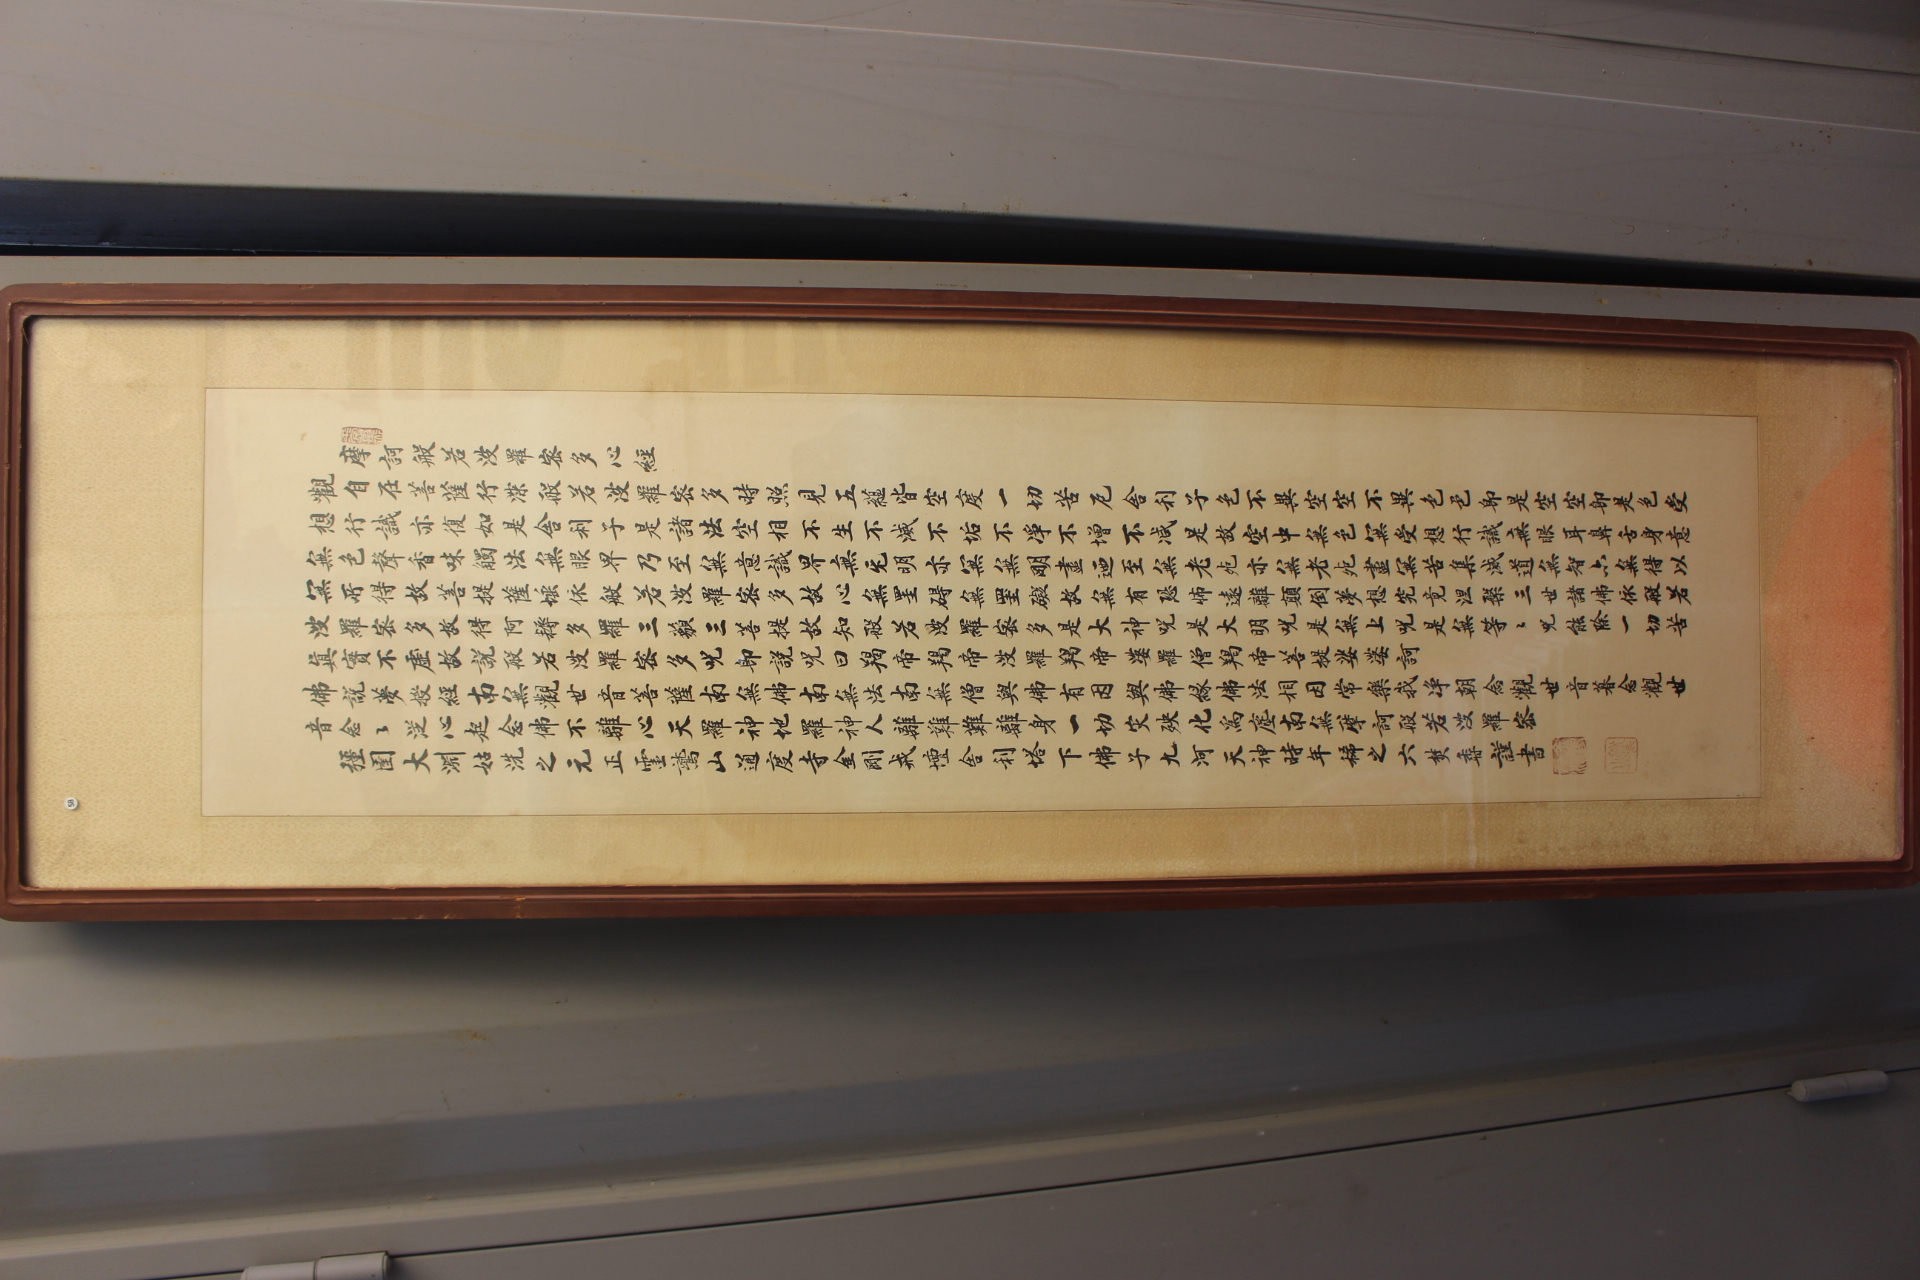 摩訶般若波羅密多心經
觀自在菩薩行深般若波羅密多時照見五蘊皆空度一切苦厄舍利子色不異空空不異色色即是空空即是色受
想行識亦復如是舍利子是諸法空相不生不滅不垢不淨不增不減是故空中無色無受想行識無眼耳鼻舌身意
無色聲香味觸法無眼界乃至無意識界無无明亦無無明盡迺至無老死亦無老死盡無苦集滅道無智亦無得以
無所得故菩提薩埵依般若波羅密多故心無罣碍無罣礙故無有恐怖遠離顛倒夢想究竟涅槃三世諸佛依般若
波羅密多故得阿耨多羅三藐三菩提故知般若波羅密多是大神呪是大明呪是無上呪是無等〻呪能除一切苦
真實不虛故說般若波羅密多呪即說呪曰羯帝羯帝波羅羯帝婆羅僧羯帝菩提娑婆訶
佛說夢授經南無觀世音菩薩南無佛南無法南無僧與佛有因與佛緣佛法相因常樂我淨朝念觀世音暮念觀世
音念〻從心起念佛不離心天羅神地羅神人離難難離身一切災殃化為塵南無摩訶般若波羅密
彊圉大淵姑洗之元正靈鷲山通度寺金剛戒壇舍利塔下佛子九河天神時年稀之六焚香謹書